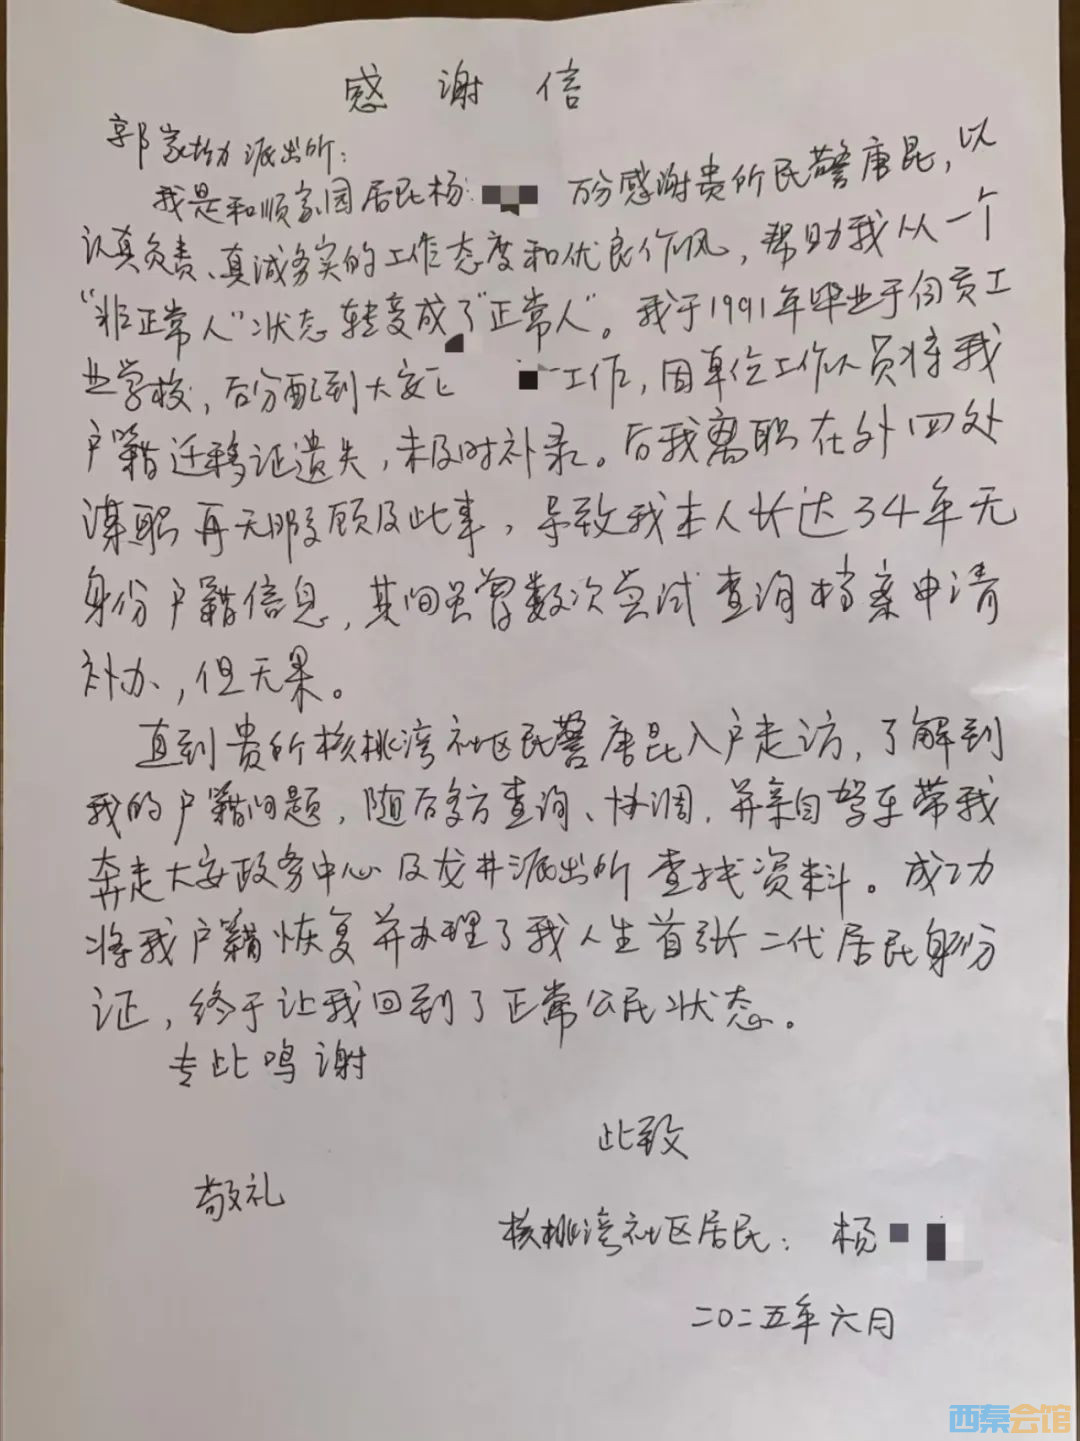 感谢信
郭家坳派出所：
我是和顺家园居民杨 万分感谢贵所民警唐昆，以
认真负责、真诚务实的工作态度和优良作风，帮助我从一个
“非正常人”状态转变成了“正常人”。我于1991年毕业于自贡工
业学校，后分配到大安 工作，因单位工作人员将我
户籍迁移证遗失，未及时补录。后我离职在外四处
谋职再无暇顾及此事，导致我本人长达34年无
身份户籍信息，其间虽曾数次尝试查询档案申请
补办，但无果。
直到贵所核桃湾社区民警唐昆入户走访，了解到
我的户籍问题，随后多方查询、协调，并亲自驾车带我
奔走大安政务中心及龙井派出所查找资料。成功
将我户籍恢复并办理了我人生首张二代居民身份
证，终于让我回到了正常公民状态。
专此鸣谢
此致
敬礼
核桃湾社区居民：杨
二〇二五年六月
西秦会馆